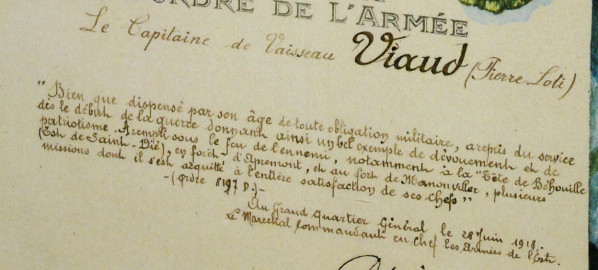 ORDRE DE L'ARMÉE
Le Capitaine de Vaisseau Viaud (Pierre Loti)
"Bien que dispensé par son âge de toute obligation militaire, a repris du service
dès le début de la guerre donnant ainsi un bel exemple de dévouement et de
patriotisme. A rempli sous le feu de l'ennemi, notamment à la "Tête de Béhouille
(Est de Saint-Dié), en forêt d'Apremont, et au fort de Manonviller, plusieurs
missions dont il s'est acquitté à l'entière satisfaction de ses chefs"
-(Ordre 8197 D.)-
Au Grand Quartier Général le 28 Juin 1918.
Le Maréchal Commandant en Chef les Armées de l'Est.